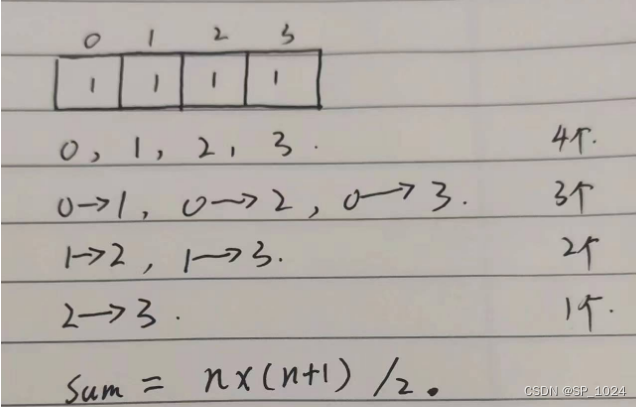 0 1 2 3
1 1 1 1
0, 1, 2, 3. 4个.
0→1, 0→2, 0→3. 3个
1→2, 1→3. 2个
2→3. 1个.
sum = n×(n+1)/2.
CSDN @SP_1024